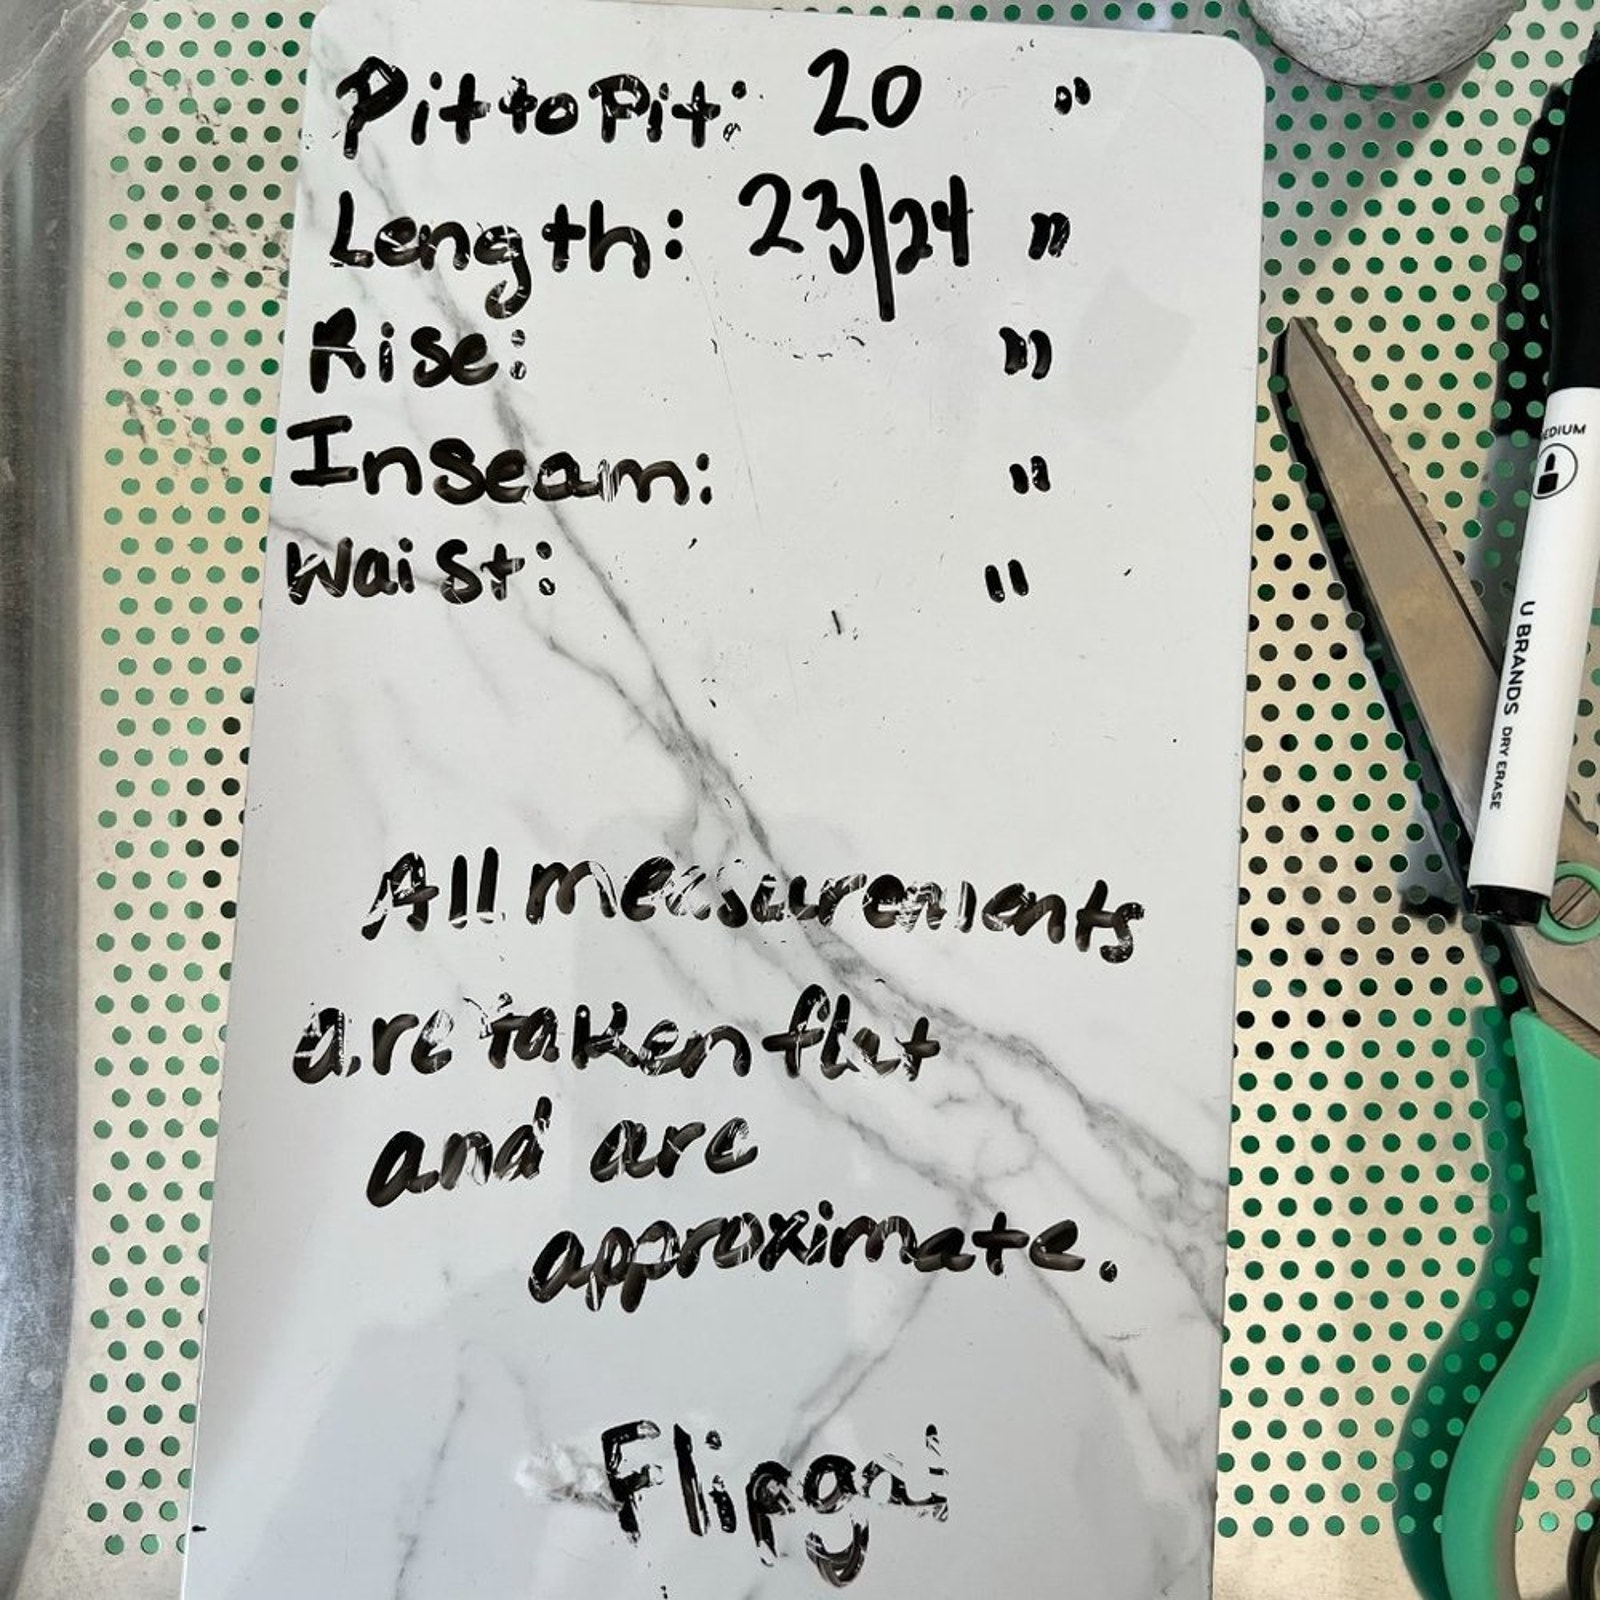 Pit to Pit: 20 "
Length: 23/24 "
Rise: "
Inseam: "
Waist: "
All measurements
are taken flat
and are
approximate.
EDIUM
U BRANDS DRY ERASE